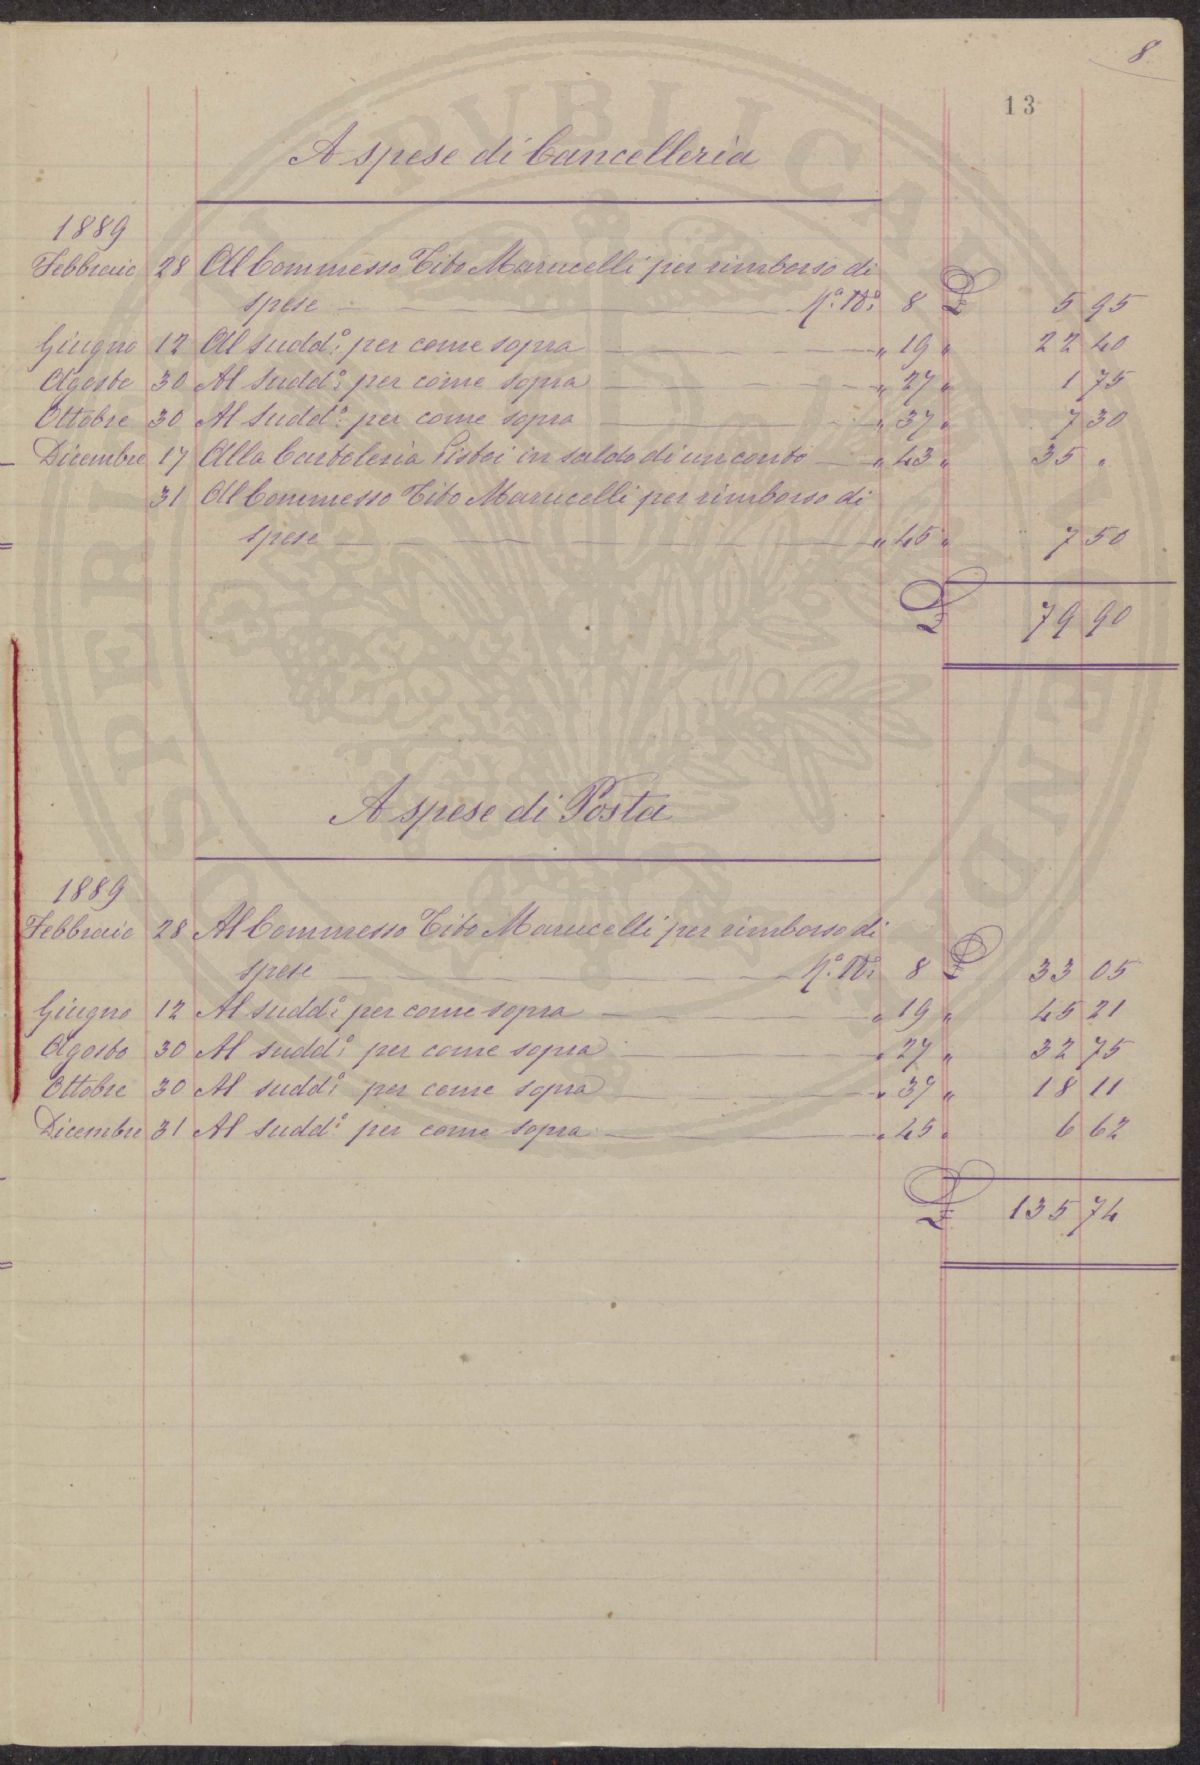 8
13
A spese di Cancelleria
1889
Febbraio 28 Al Commesso Tito Marucelli per rimborso di
spese 8 £ 5 95
Giugno 12 Al Sudd.° per come sopra " 19 " 22 40
Agosto 30 Al Sudd.° per come sopra " 27 " 1 75
Ottobre 30 Al Sudd.° per come sopra " 37 " 7 30
Dicembre 17 Alla Cartoleria Pistoi in saldo di un conto " 43 " 35 "
31 Al Commesso Tito Marucelli per rimborso di
spese " 45 " 7 50
£ 79 90
A spese di Posta
1889
Febbraio 28 Al Commesso Tito Marucelli per rimborso di
spese 8 £ 33 05
Giugno 12 Al Sudd.° per come sopra " 19 " 45 21
Agosto 30 Al Sudd.° per come sopra " 27 " 32 75
Ottobre 30 Al Sudd.° per come sopra " 37 " 18 11
Dicembre 31 Al Sudd.° per come sopra " 45 " 6 62
£ 135 74